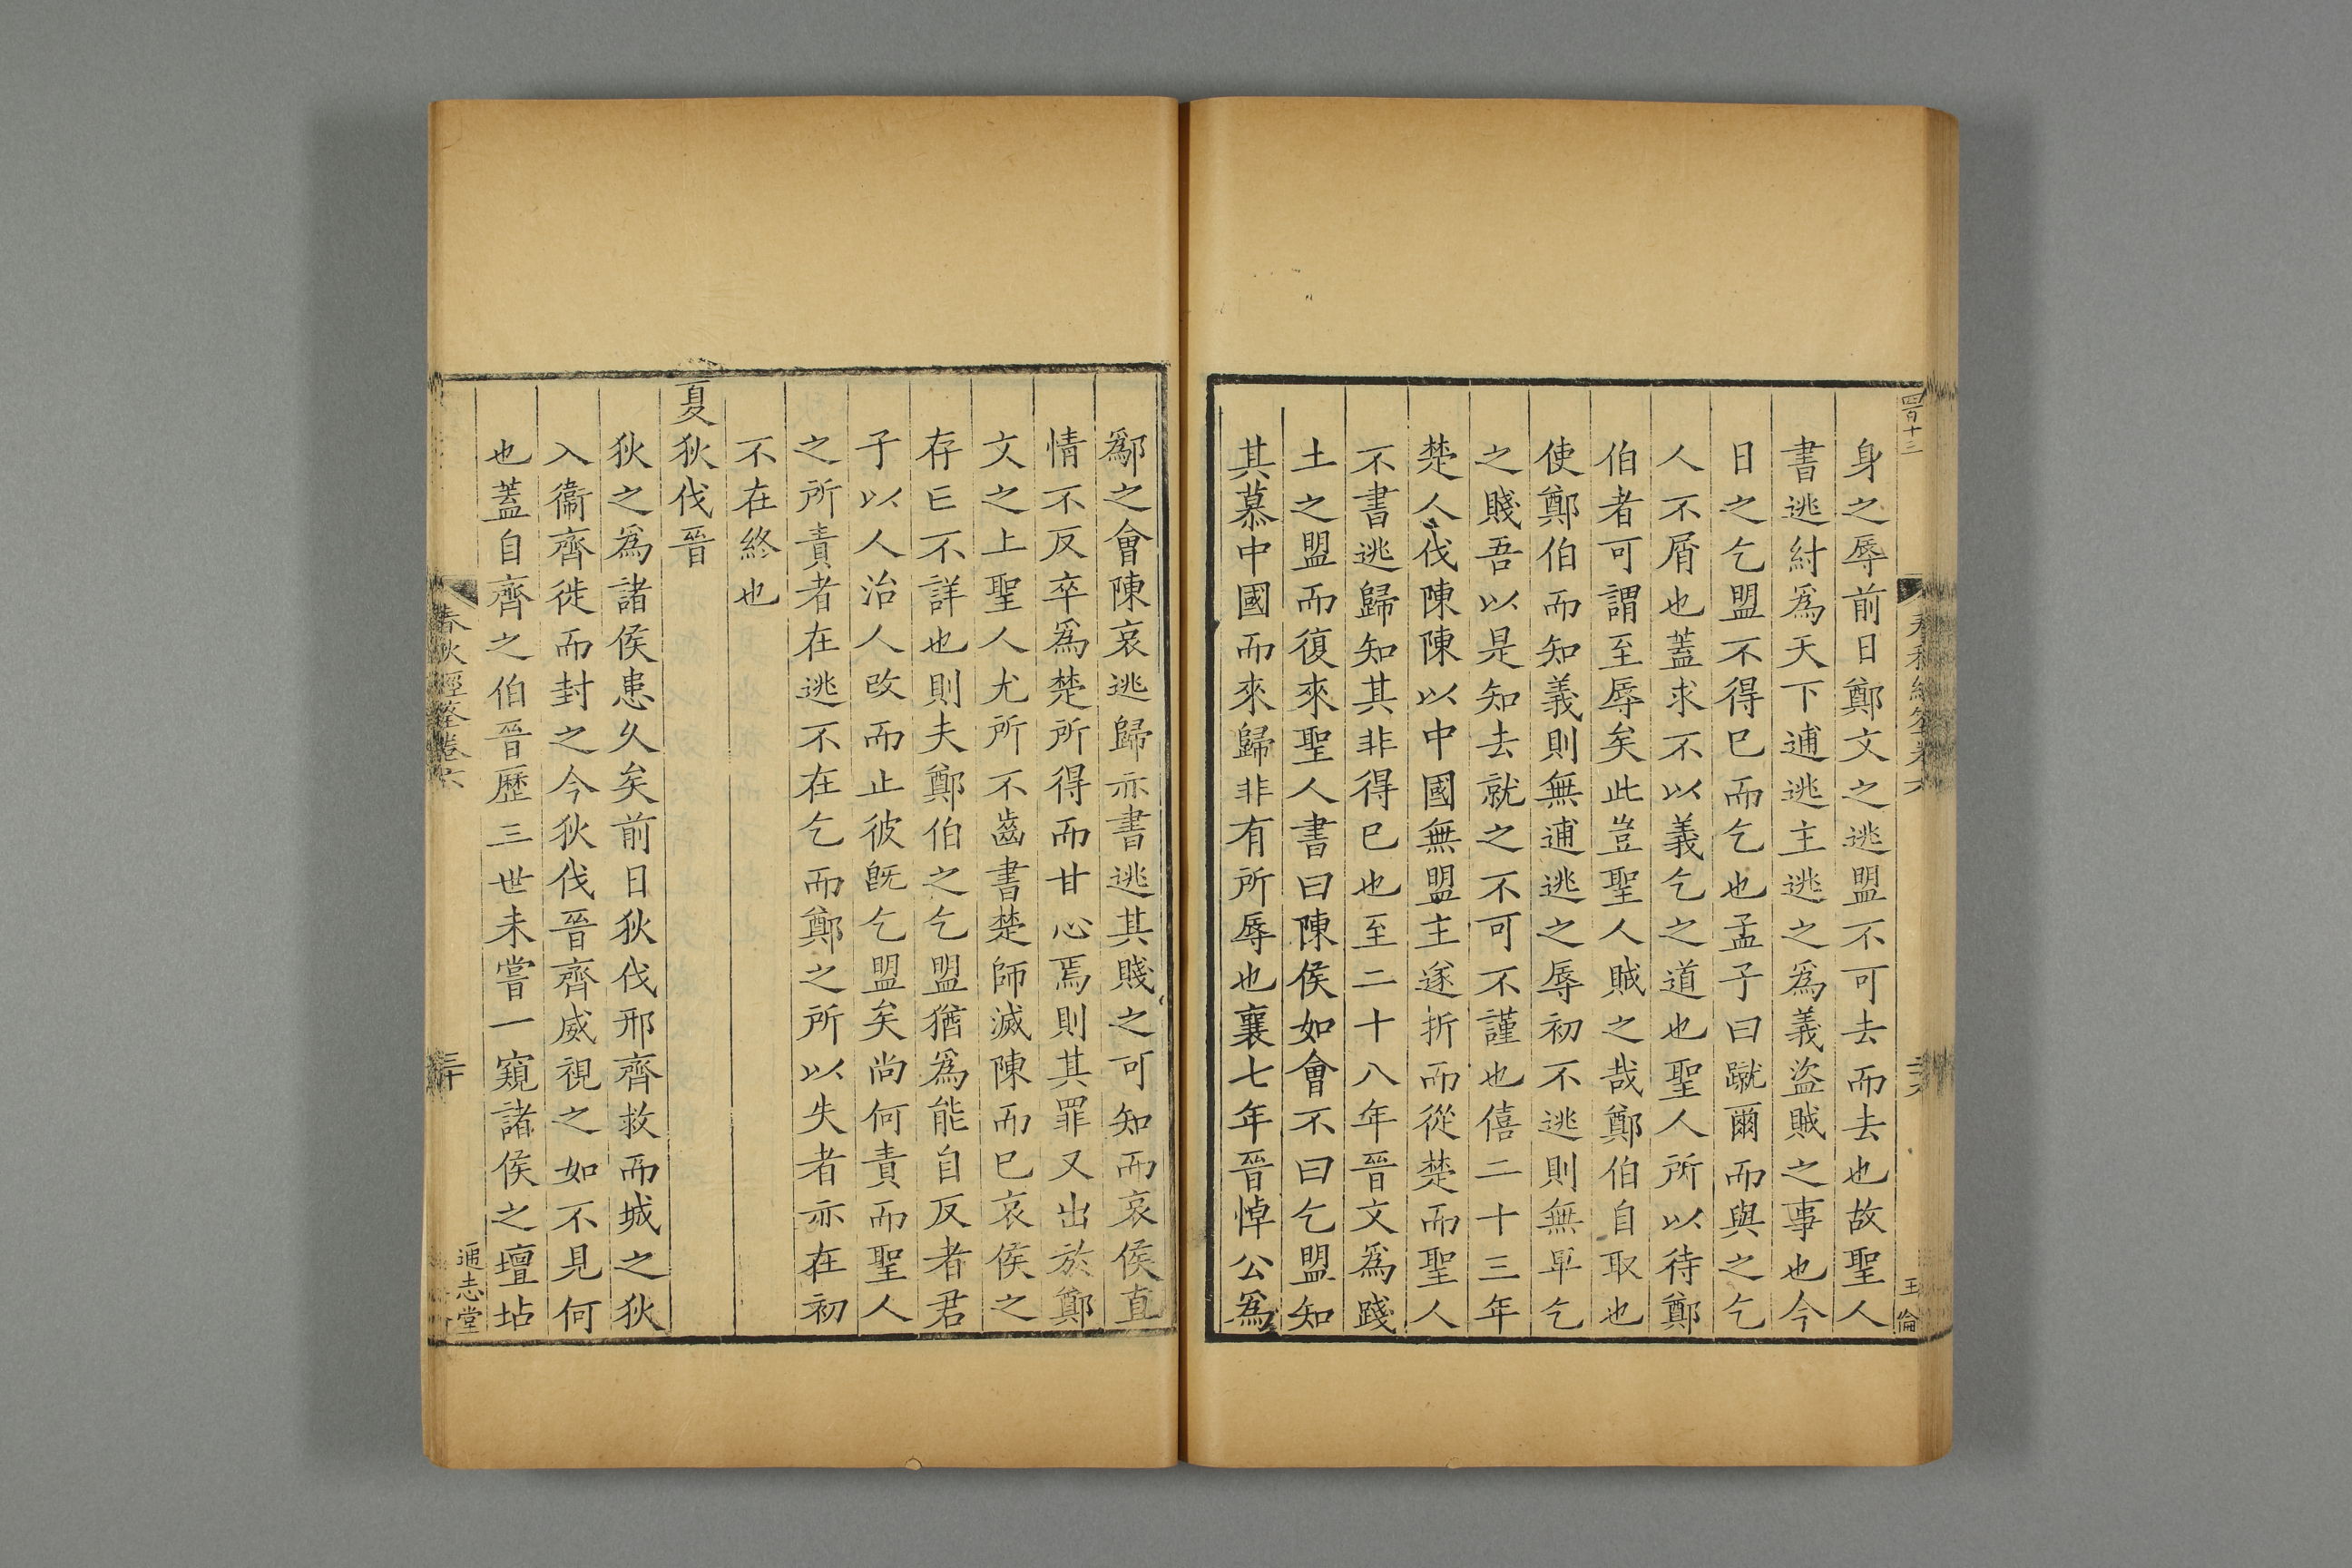 四百十三
春秋經筌卷六
二十九
王倫
身之辱前日鄭文之逃盟不可去而去也故聖人
書逃紂爲天下逋逃主逃之爲義盜賊之事也今
日之乞盟不得已而乞也孟子曰蹴爾而與之乞
人不屑也蓋求不以義乞之道也聖人所以待鄭
伯者可謂至辱矣此豈聖人賊之哉鄭伯自取也
使鄭伯而知義則無逋逃之辱初不逃則無卑乞
之賤吾以是知去就之不可不謹也僖二十三年
楚人伐陳陳以中國無盟主遂折而從楚而聖人
不書逃歸知其非得已也至二十八年晉文爲踐
土之盟而復來聖人書曰陳侯如會不曰乞盟知
其慕中國而來歸非有所辱也襄七年晉悼公爲
鄬之會陳哀逃歸亦書逃其賤之可知而哀侯直
情不反卒爲楚所得而甘心焉則其罪又出於鄭
文之上聖人尤所不齒書楚師滅陳而已哀侯之
存亡不詳也則夫鄭伯之乞盟猶爲能自反者君
子以人治人改而止彼旣乞盟矣尚何責而聖人
之所責者在逃不在乞而鄭之所以失者亦在初
不在終也
夏狄伐晉
狄之爲諸侯患久矣前日狄伐邢齊救而城之狄
入衞齊徙而封之今狄伐晉齊威視之如不見何
也蓋自齊之伯晉歷三世未嘗一窺諸侯之壇坫
春秋經筌卷六
三十
通志堂